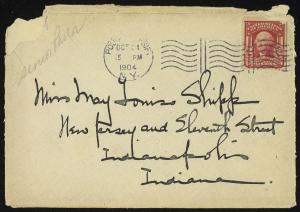 OCT 24
5 PM
1904
N.Y.
Miss May Louise Shipp
New Jersey and Eleventh Street
Indianapolis
Indiana.